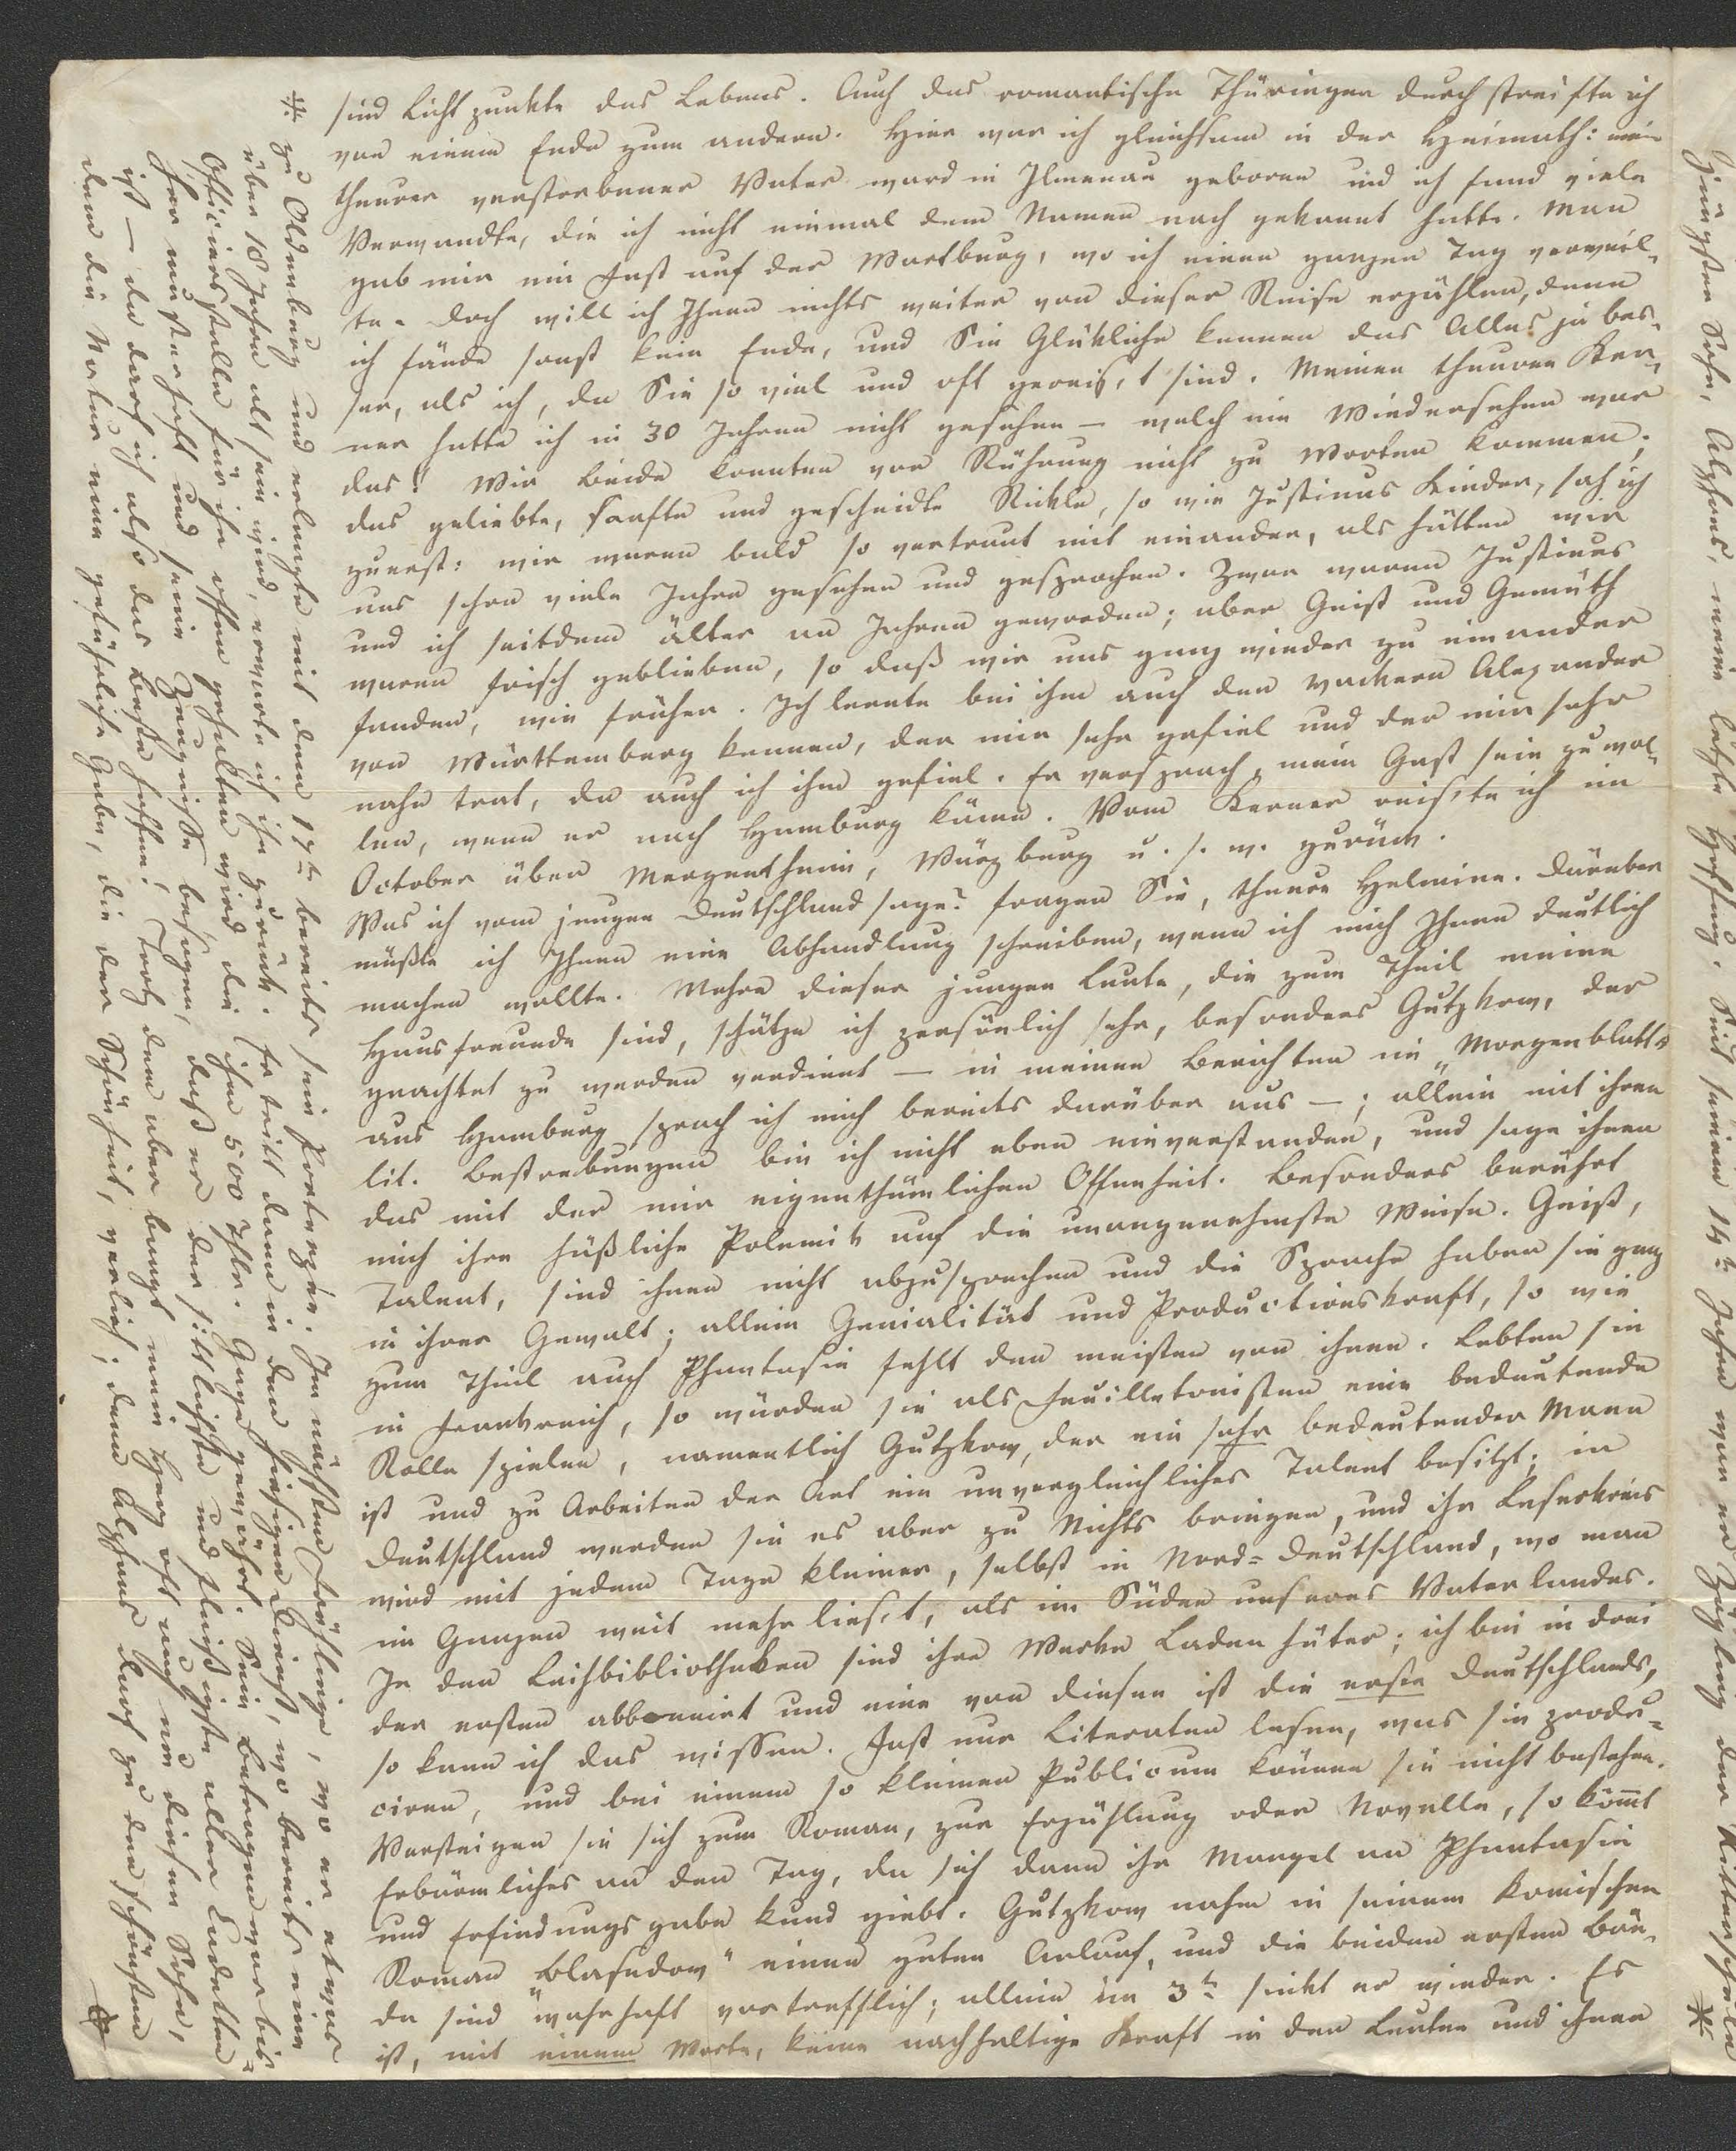 sind Lichtpunkte des Lebens. Auch das romantische Thüringen durchstreifte ich
von einem Ende zum andern. Hier war ich gleichsam in der Heimath: mein
theurer verstorbener Vater ward in Ilmenau geboren und ich fand viele
Verwandte, die ich nicht einmal dem Namen nach gekannt hatte. Man
gab mir ein Fest auf der Wartburg, wo ich einen ganzen Tag verweil-
te. Doch will ich Ihnen nichts weiter von dieser Reise erzählen, denn
ich fände sonst kein Ende, und Sie Glükliche kennen das Alles ja bes-
ser, als ich, da Sie so viel und oft gereis't sind. Meinen theuren Ker-
ner hatte ich in 30 Jahren nicht gesehen — welch ein Wiedersehen war
das! Wir beide konnten vor Rührung nicht zu Worten kommen;
das geliebte, sanfte und gescheidte Rickle, so wie Justinus Kinder, sah ich
zuerst: wir waren bald so vertraut mit einander, als hätten wir
uns schon viele Jahre gesehen und gesprochen. Zwar waren Justinus
und ich seitdem älter an Jahren geworden; aber Geist und Gemüth
waren frisch geblieben, so daß wir uns ganz wieder zu einander
fanden, wie früher. Ich lernte bei ihm auch den wackern Alexander
von Württemberg kennen, der mir sehr gefiel und der mir sehr
nahe trat, da auch ich ihm gefiel. Er versprach, mein Gast sein zu wol-
len, wenn er nach Hamburg käme. Vom Kerner reis'te ich im
October über Mergentheim, Würzburg u. s. w. zurück.
Was ich vom jungen Deutschland sage? fragen Sie, theure Helmine. Darüber
müßte ich Ihnen eine Abhandlung schreiben, wenn ich mich Ihnen deutlich
machen wollte. Mehre dieser jungen Leute, die zum Theil meine
Hausfreunde sind, schätze ich persönlich sehr, besonders Gutzkow, der
geachtet zu werden verdient — in meinen Berichten im „Morgenblatt"
aus Hamburg sprach ich mich bereits darüber aus —; allein mit ihren
lit. Bestrebungen bin ich nicht eben einverstanden, und sage ihnen
das mit der mir eigenthümlichen Offenheit. Besonders berührt
mich ihre häßliche Polemik auf die unangenehmste Weise. Geist,
Talent, sind ihnen nicht abzusprechen und die Sprache haben sie ganz
in ihrer Gewalt; allein Genialität und Productionskraft, so wie
zum Theil auch Phantasie fehlt den meisten von ihnen. Lebten sie
in Frankreich, so würden sie als Feuilletonisten eine bedeutende
Rolle spielen, namentlich Gutzkow, der ein sehr bedeutender Mann
ist und zu Arbeiten der Art ein unvergleichliches Talent besitzt; in
Deutschland werden sie es aber zu Nichts bringen, und ihr Leserkreis
wird mit jedem Tage kleiner, selbst in Nord-Deutschland, wo man
im Ganzen weit mehr lies't, als im Süden unseres Vaterlandes.
In den Leihbibliotheken sind ihre Werke Ladenhüter; ich bin in drei
der ersten abbonnirt und eine von diesen ist die erste Deutschlands,
so kann ich das wissen. Fast nur Literaten lesen, was sie produ-
ciren, und bei einem so kleinen Publicum können sie nicht bestehen.
Versteigen sie sich zum Roman, zur Erzählung oder Novelle, so kömmt
Erbärmliches an den Tag, da sich dann ihr Mangel an Phantasie
und Erfindungsgabe kund giebt. Gutzkow nahm in seinem komischen
Roman „Blasedow" einen guten Anlauf, und die beiden ersten Bän-
de sind wahrhaft vortrefflich; allein im 3ten sinkt er wieder. Es
ist, mit einem Worte, keine nachhaltige Kraft in den Leuten und ihnen
zu Oldenburg und erlangte mit dem 17ten bereits sein Portepée. Im nächsten Frühlinge, wo er etwas
über 18 Jahre alt sein wird, erwarte ich ihn zurück. Er tritt dann in den hiesigen Dienst, wo bereits eine
Officierstelle für ihn offen gehalten wird, die ihm 500 Thlr. Gage gewährt. Sein Betragen war bis-
her musterhaft und seine Zeugnisse besagen, daß er der sittlichste und fleißigste aller Cadetten
ist — da darf ich also das Beste hoffen! Trotz dem aber bangt mein Herz oft auch um diesen Sohn,
dem die Natur eine gefährliche Gabe, die der Schönheit, verlieh; denn Alphons darf zu den schönsten
jüngsten Sohn, Alphons, meine letzte Hoffnung. Seit seinem 14ten Jahre war er Zögling der Militärschule